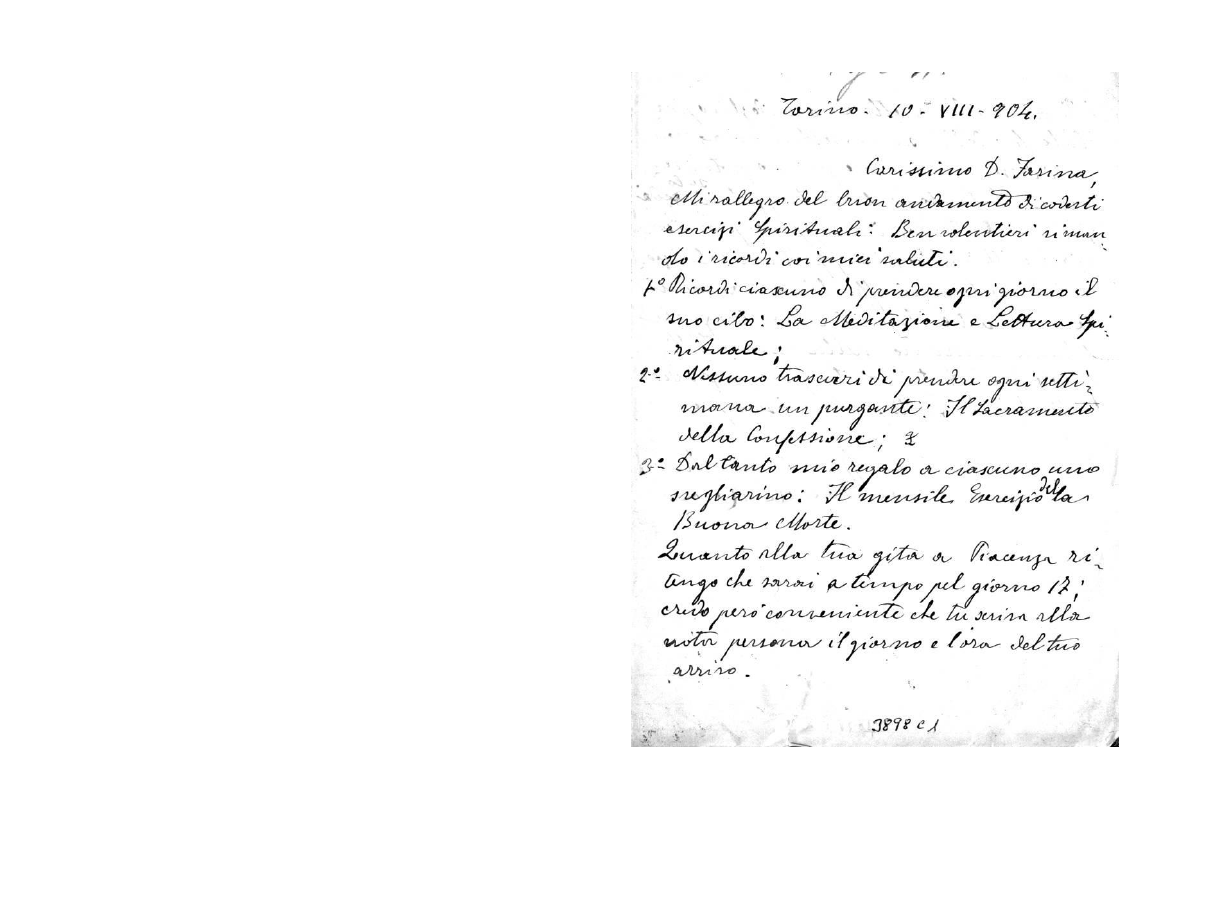 Torino. 10. VIII - 904.
Carissimo D. Farina,
Mi rallegro del buon andamento di codesti
esercizi Spirituali: Ben volentieri riman
do i ricordi coi miei saluti.
1º Ricordi ciascuno di prendere ogni giorno il
suo cibo: La Meditazione e Lettura Spi:
rituale;
2º Nessuno trascuri di prendere ogni setti:
mana un purgante: Il Sacramento
della Confessione;
3º Dal canto mio regalo a ciascuno uno
svegliarino: Il mensile Esercizio della
Buona Morte.
Quanto alla tua gita a Piacenza ri:
tengo che sarai a tempo pel giorno 17;
credo però conveniente che tu scriva alla
nota persona il giorno e l'ora del tuo
arrivo.
3898 C 1